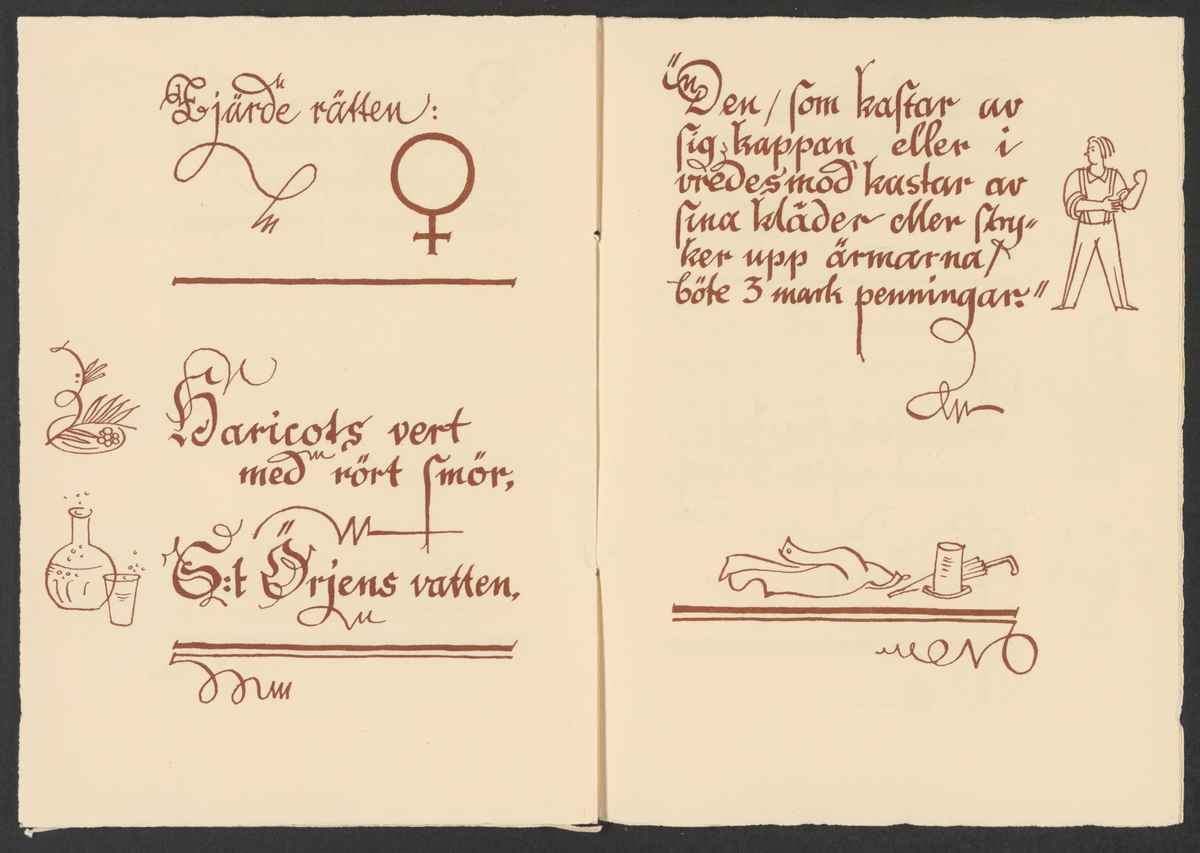 Fjärde rätten:
Haricots vert
med rört smör,
S:t Örjens vatten,
"Den, som kastar av
sig kappan eller i
vredesmod kastar av
sina kläder eller stry-
ker upp ärmarna,
böte 3 mark penningar."